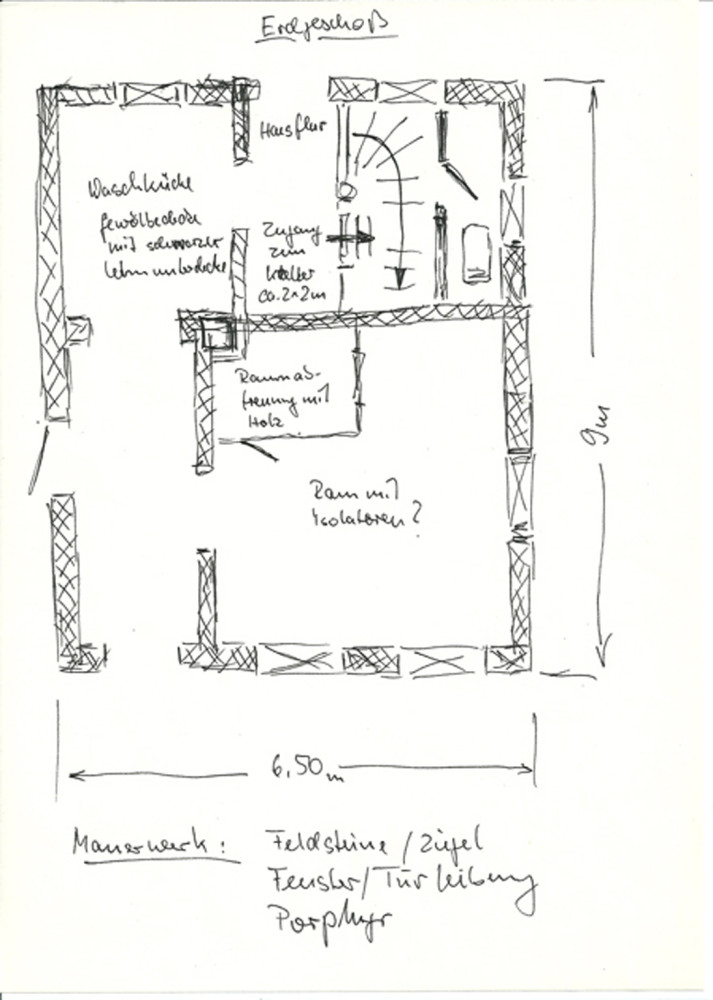 Erdgeschoß
Hausflur
Waschküche
gewölbedecke
mit schwarzer
Lehm
Zugang
zum
Keller
ca. 2x2m
Raumab-
trennung mit
Holz
Raum mit
Isolatoren?
9m
6,50m
Mauerwerk: Feldsteine / Ziegel
Fenster/Tür leibung
Porphyr